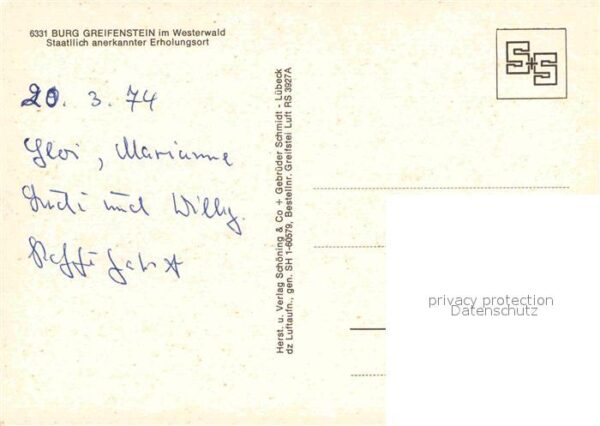 6331 BURG GREIFENSTEIN im Westerwald
Staatllich anerkannter Erholungsort
S+S
20. 3. 74
, Marianne
und Willy.
Herst. u. Verlag Schöning & Co + Gebrüder Schmidt - Lübeck
dz Luftaufn., gen. SH 1-60579, Bestellnr. Greifstei Luft RS 3927A
privacy protection
Datenschutz